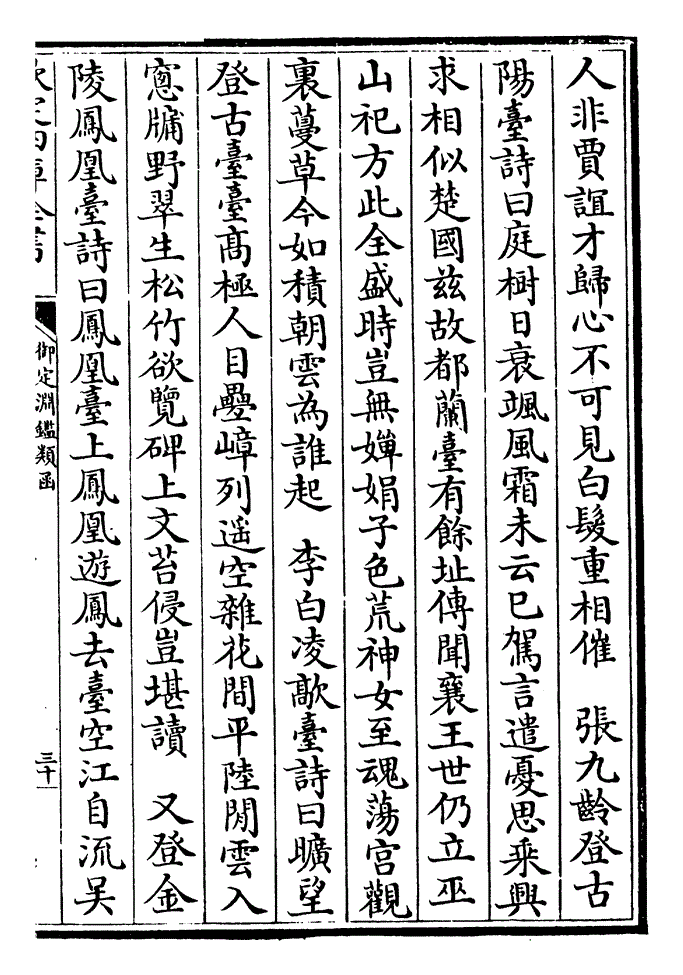 人非賈誼才歸心不可見白髮重相催　張九齡登古
陽臺詩曰庭樹日衰颯風霜未云已駕言遣憂思乘興
求相似楚國茲故都蘭臺有餘址傳聞襄王世仍立巫
山祀方此全盛時豈無嬋娟子色荒神女至魂蕩宮觀
裏蔓草今如積朝雲為誰起　李白凌歊臺詩曰曠望
登古臺臺髙極人目疊嶂列遥空雜花間平陸閒雲入
窻牖野翠生松竹欲覽碑上文苔侵豈堪讀　又登金
陵鳳凰臺詩曰鳳凰臺上鳳凰遊鳳去臺空江自流吴
欽定四庫全書
御定淵鑑類函
三十一